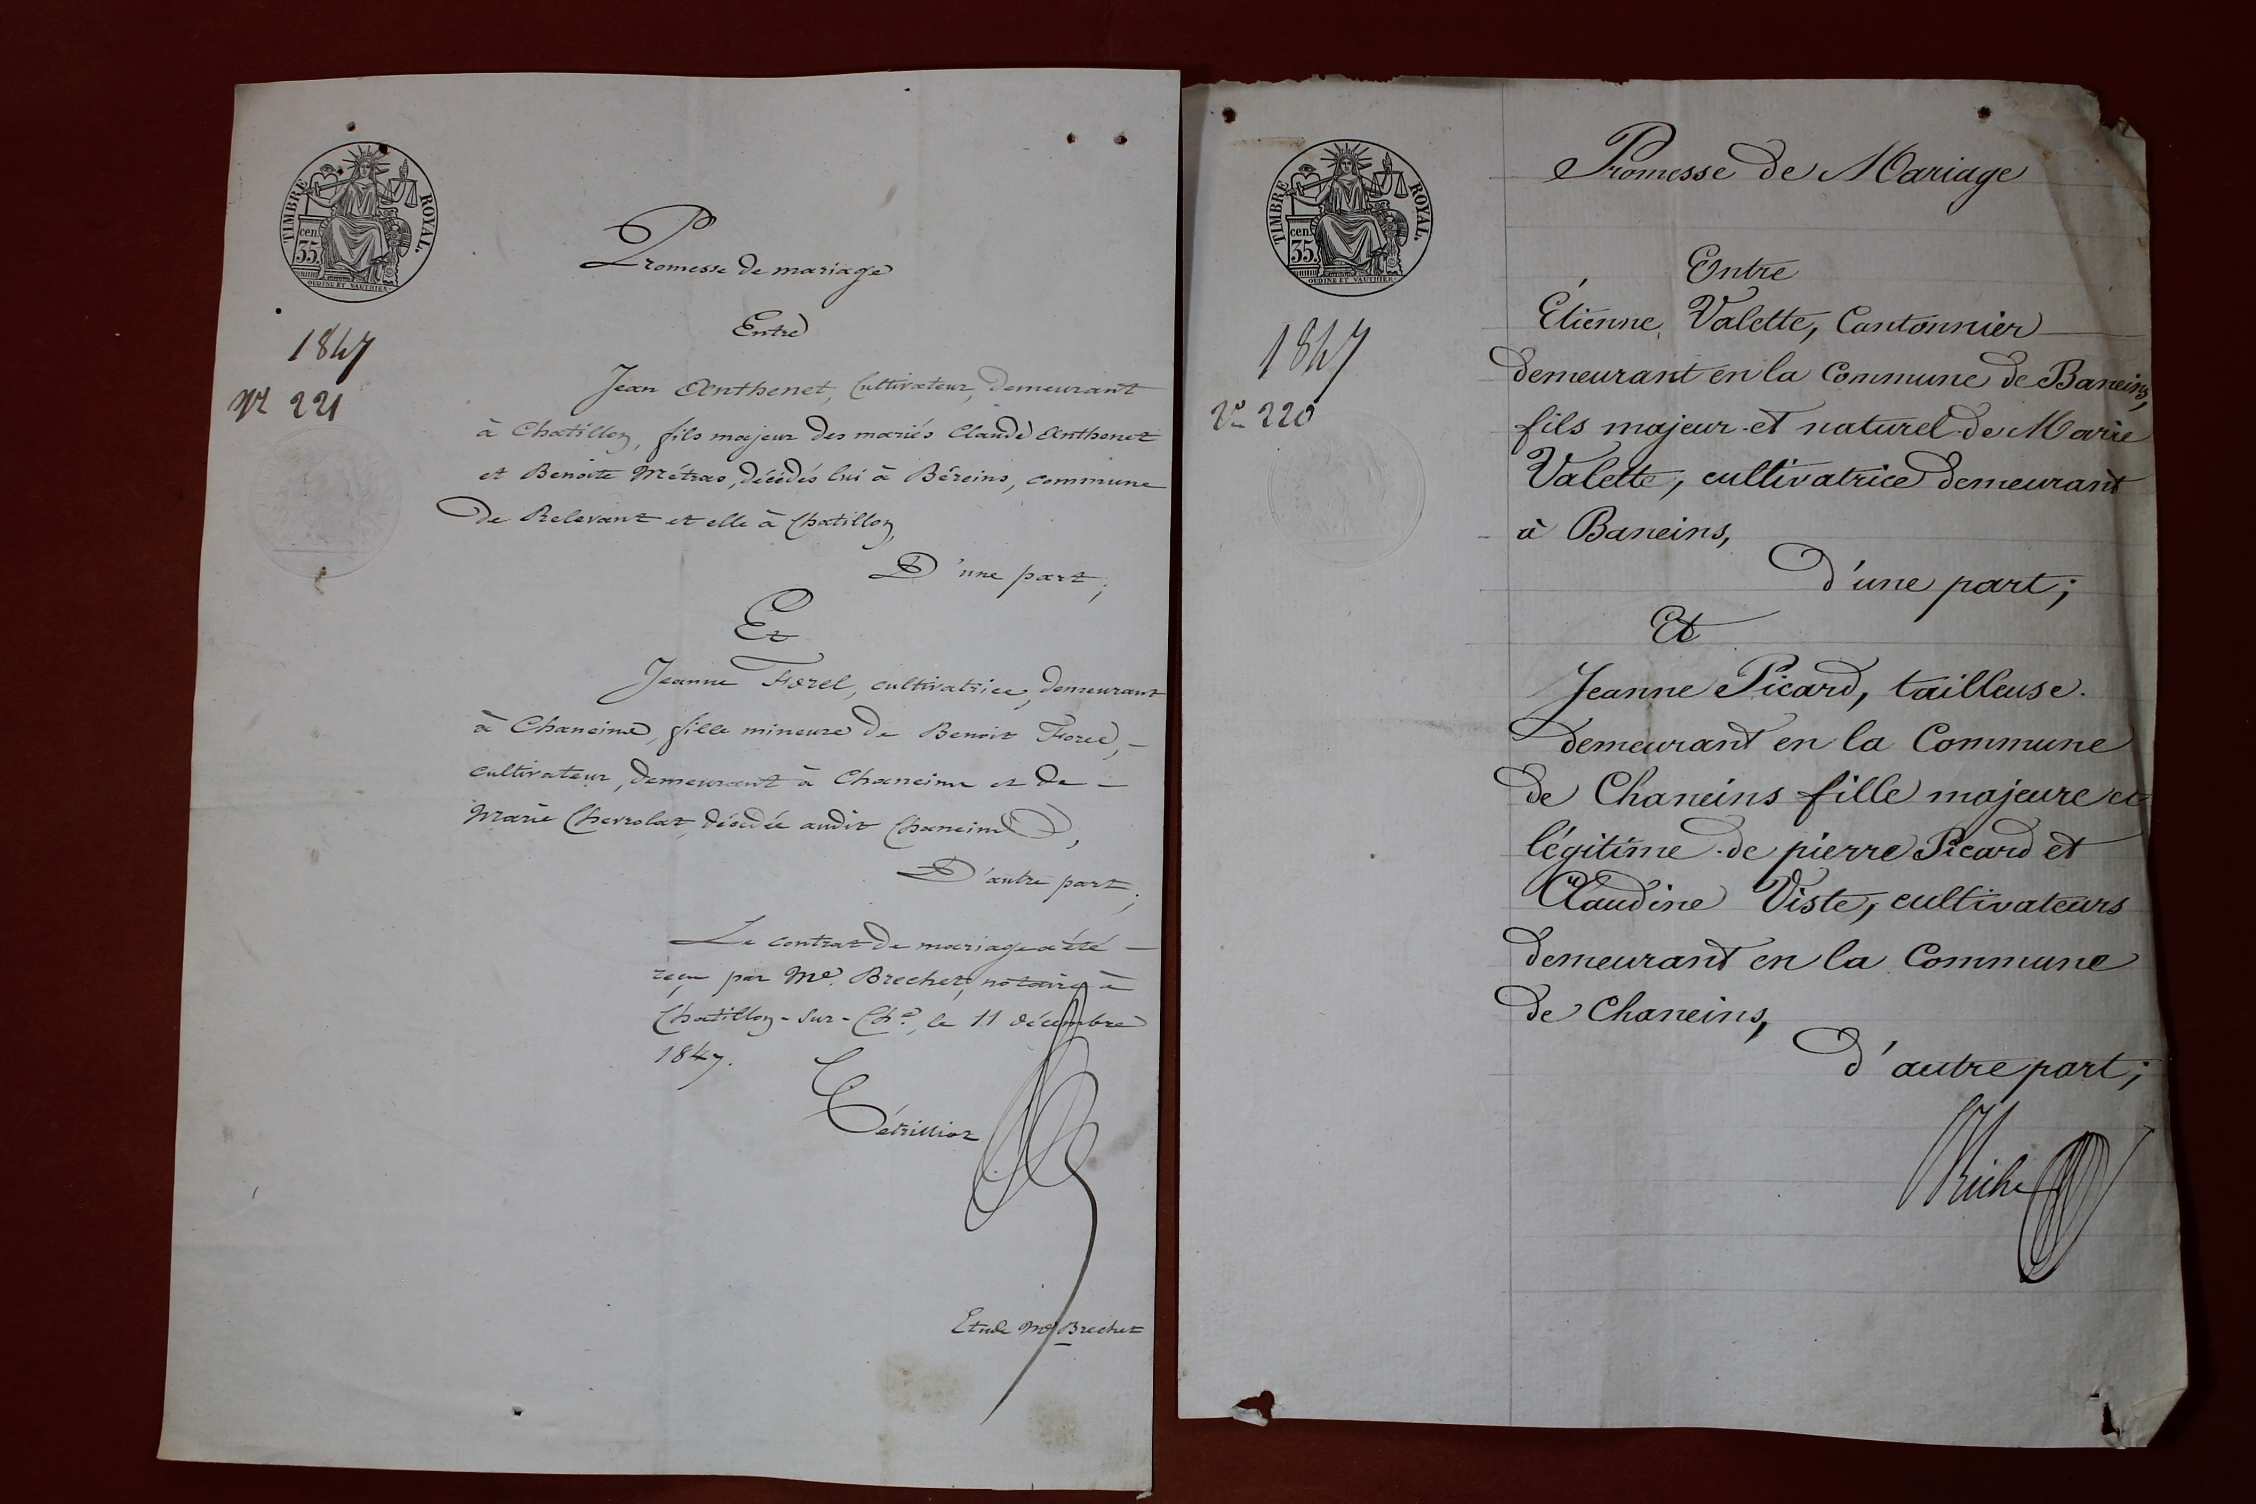 TIMBRE ROYAL.
cen.
35.
OUDINÉ ET VAUTHIER
1847
No 221
Promesse de mariage
Entre
Jean Anthenet, Cultivateur, demeurant
à Chatillon, fils majeur des mariés Claude Anthenet
et Benoite Métras, décédés lui à Béreins, commune
de Relevant et elle à Chatillon,
D'une part;
Et
Jeanne Forel, cultivatrice, demeurant
à Chaneins, fille mineure de Benoit Forel,
cultivateur, demeurant à Chaneins et de
Marie Chevrolat, décédée audit Chaneins,
D'autre part;
Le contrat de mariage a été
reçu par Me. Brechet, notaire à
Chatillon-sur-Che, le 11 décembre
1847.
Etude Me Brechet
TIMBRE ROYAL.
cen.
35.
OUDINÉ ET VAUTHIER
1847
No 220
Promesse de Mariage
Entre
Étienne Valette, Cantonnier
demeurant en la Commune de Baneins,
fils majeur et naturel de Marie
Valette, cultivatrice demeurant
à Baneins,
d'une part;
Et
Jeanne Picard, tailleuse
demeurant en la Commune
de Chaneins fille majeure et
légitime de pierre Picard et
Claudine Viste, cultivateurs
demeurant en la Commune
de Chaneins,
d'autre part;